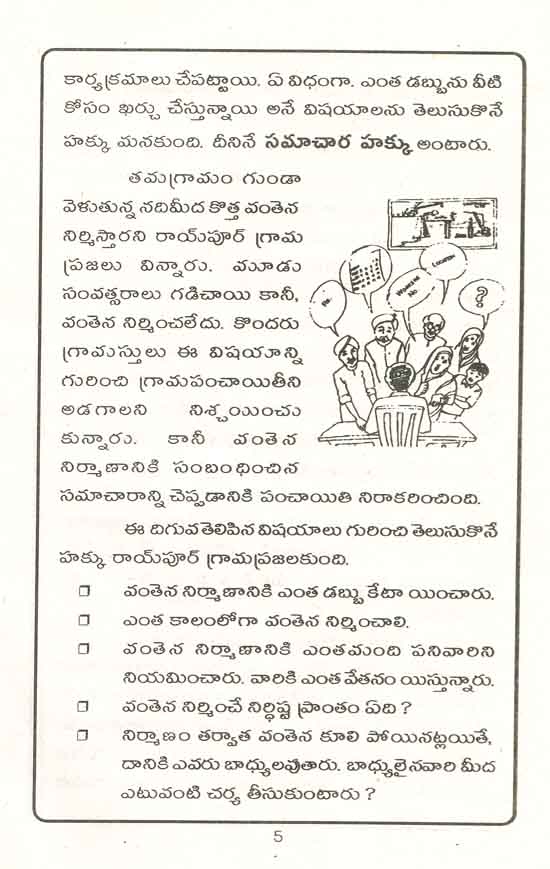 కార్యక్రమాలు చేపట్టాయి. ఏ విధంగా. ఎంత డబ్బును వీటి
కోసం ఖర్చు చేస్తున్నాయి అనే విషయాలను తెలుసుకొనే
హక్కు మనకుంది. దీనినే సమాచార హక్కు అంటారు.
తమగ్రామం గుండా
వెళుతున్న నదిమీద కొత్త వంతెన
నిర్మిస్తారని రాయ్‌పూర్ గ్రామ
ప్రజలు విన్నారు. మూడు
సంవత్సరాలు గడిచాయి కానీ,
వంతెన నిర్మించలేదు. కొందరు
గ్రామస్తులు ఈ విషయాన్ని
గురించి గ్రామపంచాయితీని
అడగాలని నిశ్చయించు
కున్నారు. కానీ వంతెన
నిర్మాణానికి సంబంధించిన
సమాచారాన్ని చెప్పడానికి పంచాయితి నిరాకరించింది.
Rs.
Location
?
ఈ దిగువతెలిపిన విషయాలు గురించి తెలుసుకొనే
హక్కు రాయ్‌పూర్ గ్రామప్రజలకుంది.
❒ వంతెన నిర్మాణానికి ఎంత డబ్బు కేటా యించారు.
❒ ఎంత కాలంలోగా వంతెన నిర్మించాలి.
❒ వంతెన నిర్మాణానికి ఎంతమంది పనివారిని
నియమించారు. వారికి ఎంత వేతనం యిస్తున్నారు.
❒ వంతెన నిర్మించే నిర్ధిష్ట ప్రాంతం ఏది ?
❒ నిర్మాణం తర్వాత వంతెన కూలి పోయినట్లయితే,
దానికి ఎవరు బాధ్యులవుతారు. బాధ్యులైనవారి మీద
ఎటువంటి చర్య తీసుకుంటారు ?
5